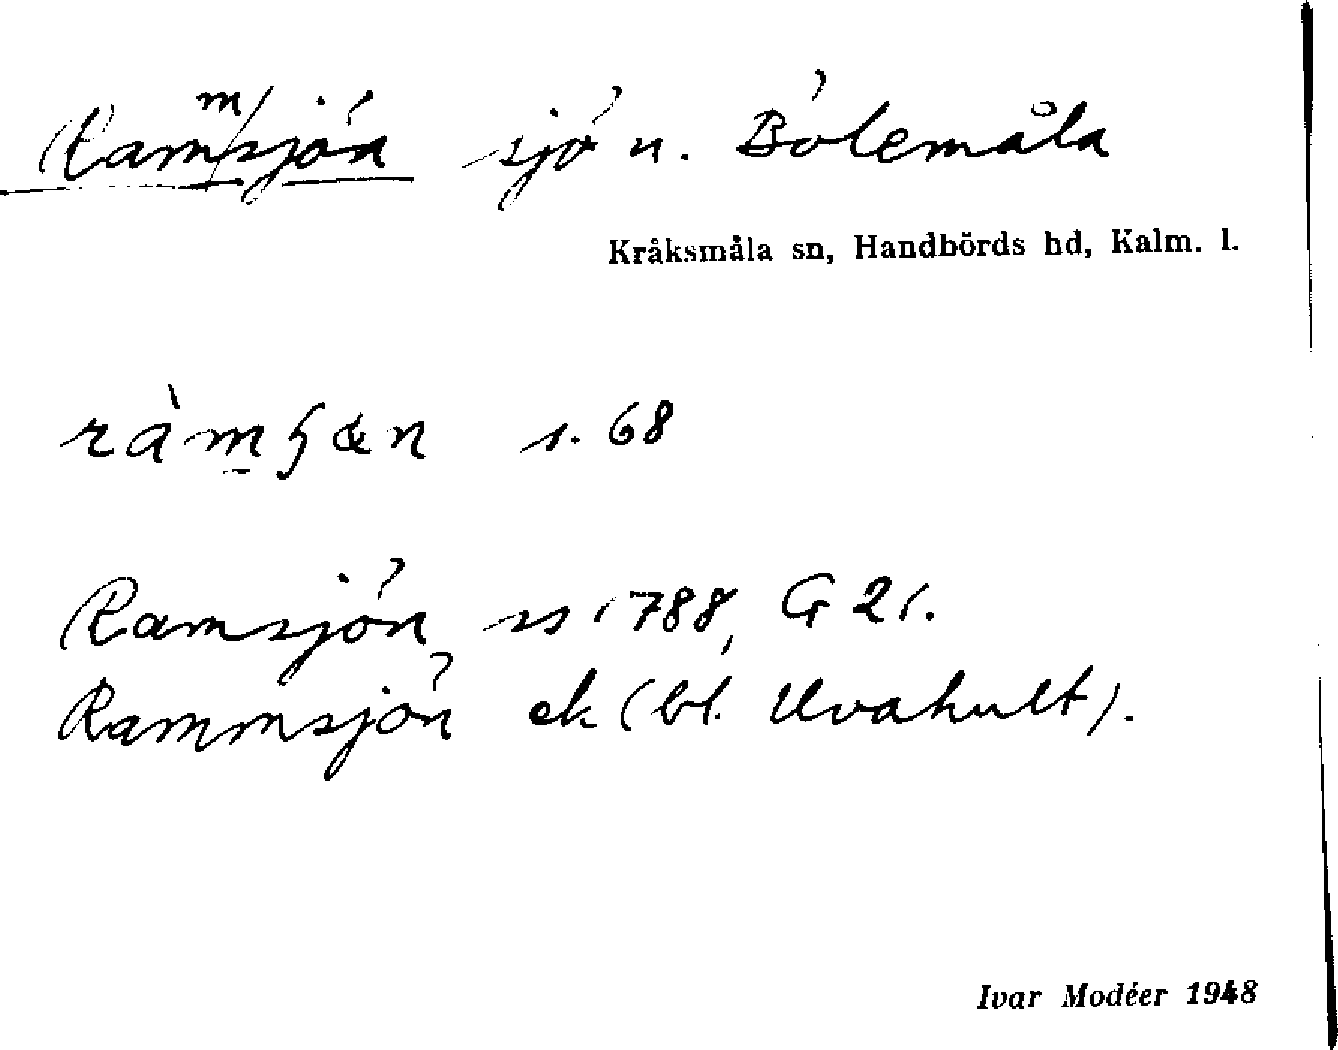 Rammsjön sjö n. Bölemåla
Kråksmåla sn, Handbörds hd, Kalm. l.
s. 68
Ramsjön ss 1788, G 21.
Rammsjön ek (bl. Uvahult).
Ivar Modéer 1948